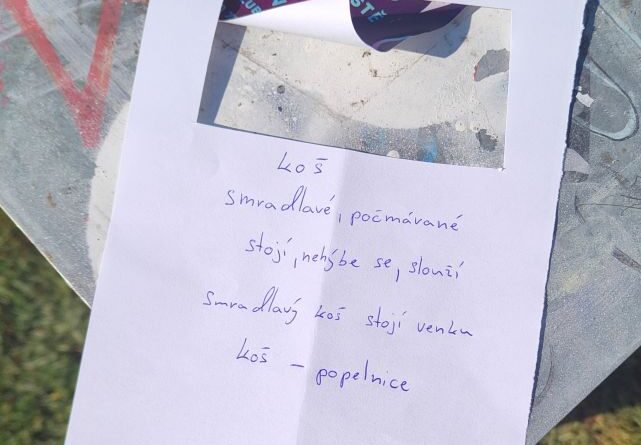 STĚ
koš
smradlavé, počmávané
stojí, nehýbe se, slouží
smradlavý koš stojí venku
koš – popelnice